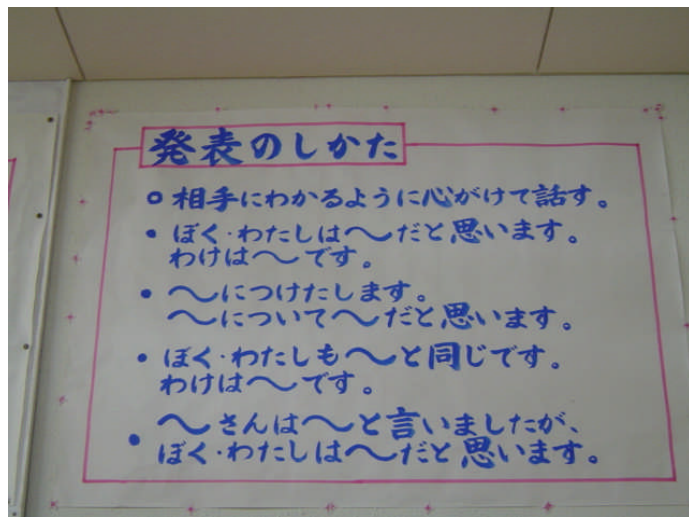 発表のしかた
○相手にわかるように心がけて話す。
・ぼく・わたしは〜だと思います。
わけは〜です。
・〜につけたします。
〜について〜だと思います。
・ぼく・わたしも〜と同じです。
わけは〜です。
・〜さんは〜と言いましたが、
ぼく・わたしは〜だと思います。